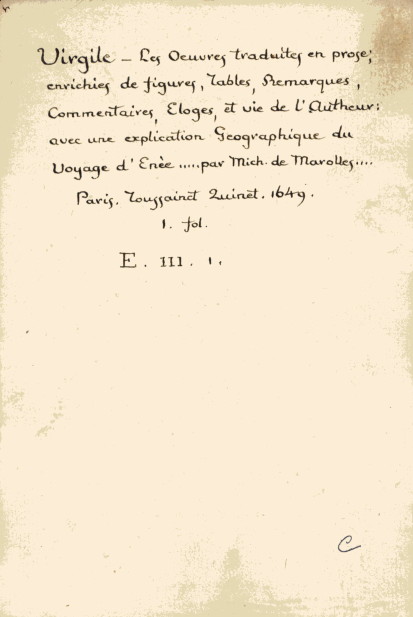 Virgile – Les Oeuvres traduites en prose;
enrichies de figures, Tables, Remarques,
Commentaires, Eloges, et vie de l'Autheur:
avec une explication Geographique du
Voyage d'Enèe .....par Mich. de Marolles....
Paris. Toussainct Quinet. 1649.
1. fol.
E. III. 1.
C